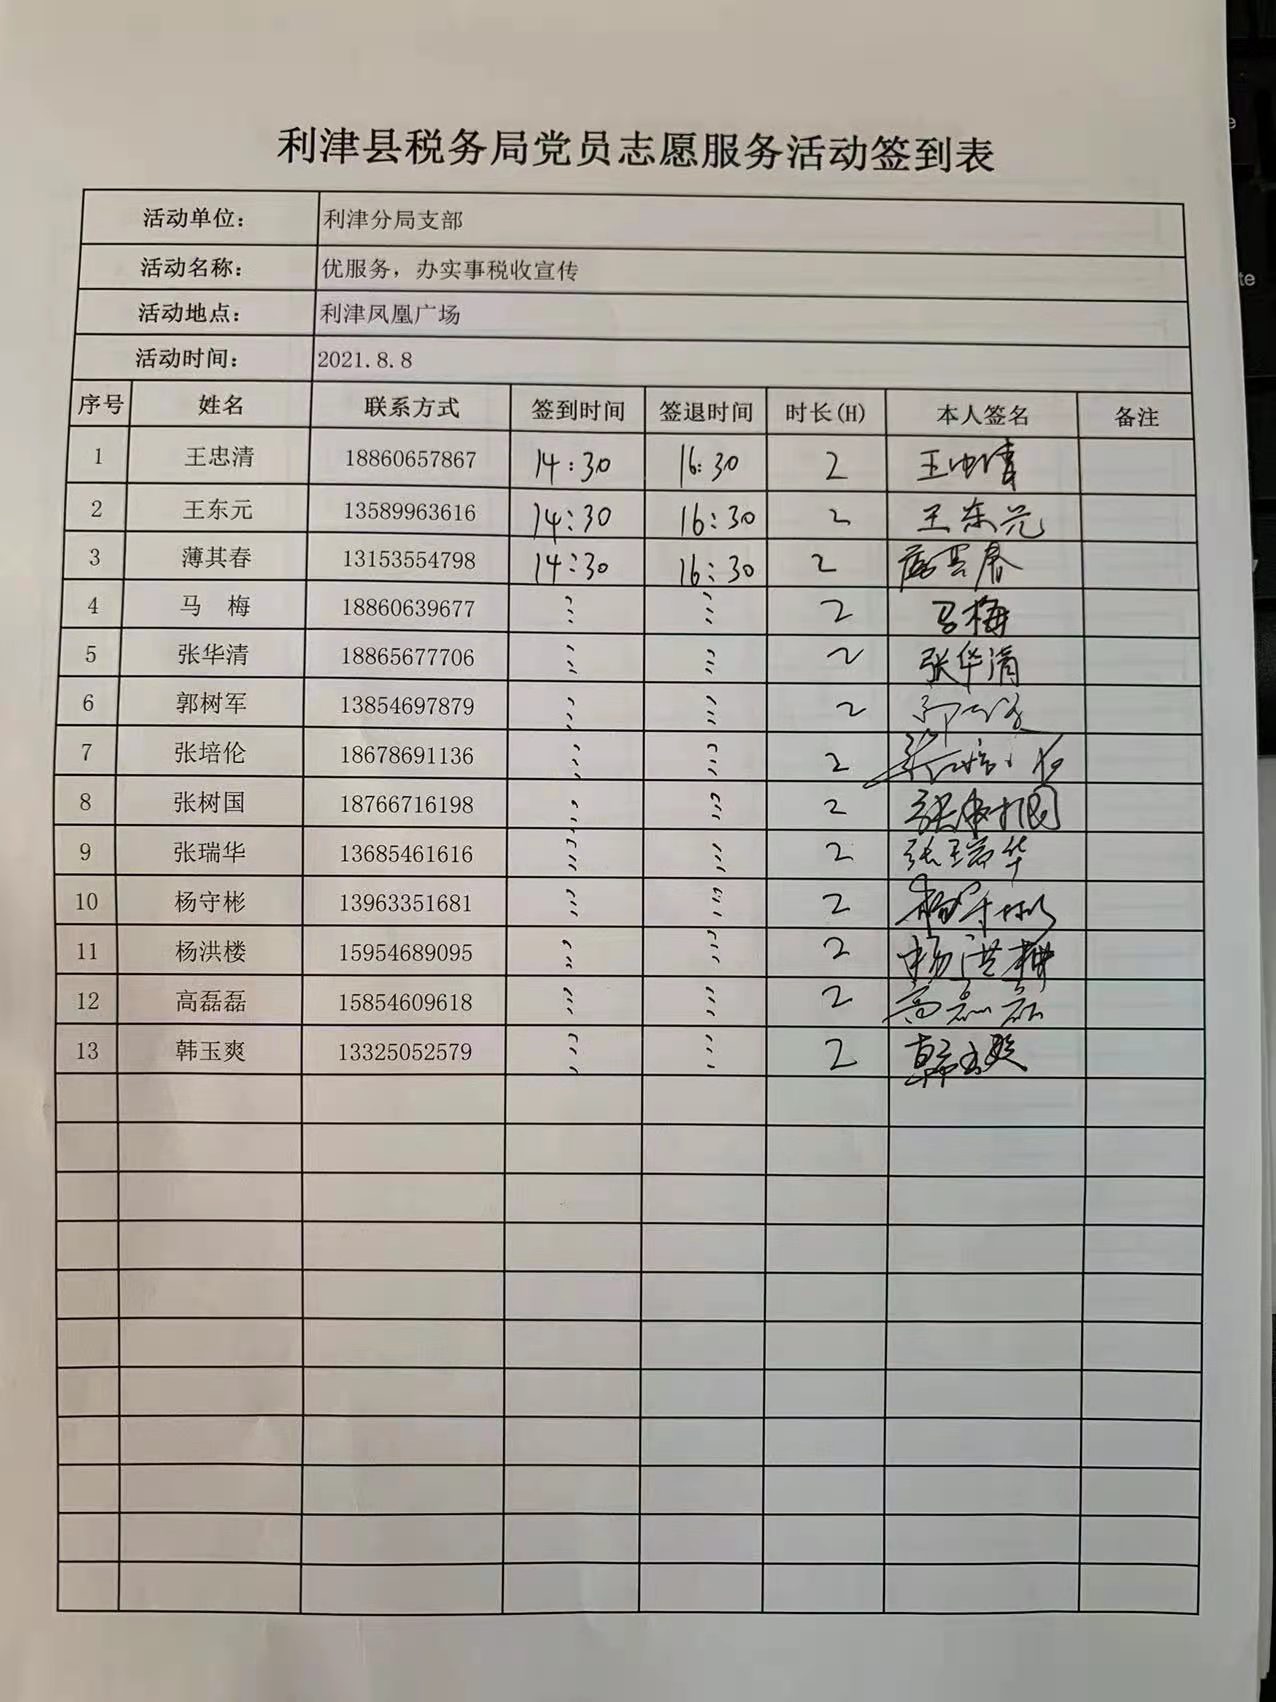 利津县税务局党员志愿服务活动签到表
活动单位： 利津分局支部
活动名称： 优服务，办实事税收宣传
活动地点： 利津凤凰广场
活动时间： 2021.8.8
序号 姓名 联系方式 签到时间 签退时间 时长(H) 本人签名 备注
1 王忠清 18860657867 14:30 16:30 2 王忠清
2 王东元 13589963616 14:30 16:30 2 王东元
3 薄其春 13153554798 14:30 16:30 2 薄其春
4 马 梅 18860639677 2 马梅
5 张华清 18865677706 2 张华清
6 郭树军 13854697879 2
7 张培伦 18678691136 2
8 张树国 18766716198 2 张树国
9 张瑞华 13685461616 2 张瑞华
10 杨守彬 13963351681 2 杨守彬
11 杨洪楼 15954689095 2 杨洪楼
12 高磊磊 15854609618 2 高磊磊
13 韩玉爽 13325052579 2 韩玉爽